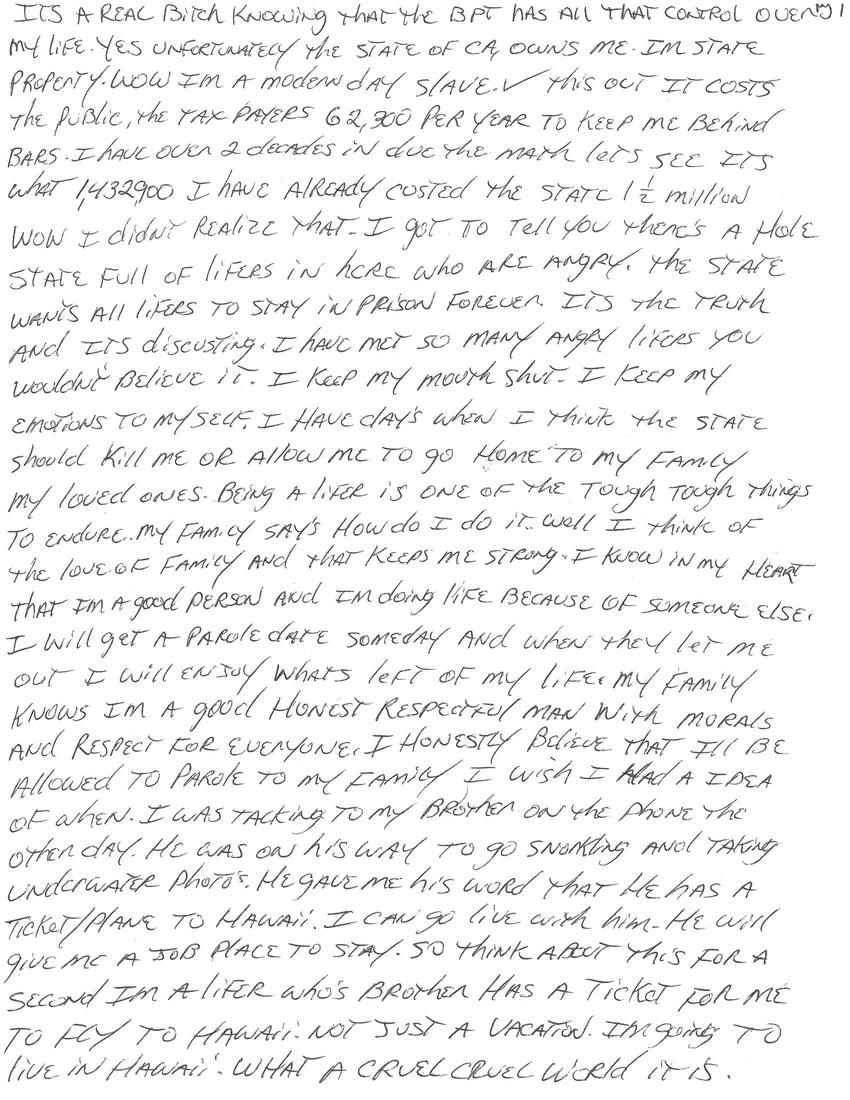 ITS A REAL Bitch KNOWING that the BPT HAS ALL THAT CONTROL OVER
MY LIFE. YES UNFORTUNATELY the STATE OF CA, OWNS ME. IM STATE
PROPERTY. WOW IM A modern day SLAVE. ✓ this OUT IT COSTS
the PUBLIC, the TAX PAYERS 62,300 PER YEAR TO KEEP ME BEHIND
BARS. I HAVE OVER 2 decades in due the MATH let's SEE ITS
what 1,432900 I HAVE ALREADY COSTED THE STATE 1 ½ million
WOW I didN'T REALIZE THAT. I got TO Tell YOU there's A HOLE
STATE FULL OF lifers IN here who ARE ANGRY. the STATE
WANTS All lifers TO STAY in PRISON FOREVER. ITS the TRUTH
AND ITS discusting. I HAVE MET SO MANY ANGRY lifers YOU
wouldn't BELIEVE iT. I KEEP MY mouth shut. I KEEP MY
EMOTIONS TO MYSELF. I HAVE day's when I think the STATE
should Kill ME OR Allow ME TO go HOME TO MY FAMILY
MY loved ONES. BEING A liFER is ONE OF the TOUGH TOUGH things
TO ENDURE. MY FAMILY SAY'S HOW do I do iT. well I think OF
the love OF FAMILY AND that KEEPS ME STRONG. I KNOW IN MY HEART
THAT IM A good PERSON AND IM doing liFE BECAUSE OF SOMEONE ELSE.
I will get A PAROLE date SOMEDAY AND when they let ME
OUT I will ENJOY WHATS leFT OF MY liFE. MY FAMILY
KNOWS IM A good HONEST RESPECTFUL MAN With MORALS
AND RESPECT FOR EVERYONE. I HONESTLY BELIEVE THAT Ill BE
AllOWED TO PAROLE TO MY FAMILY I wish I HAD A IDEA
OF when. I WAS TALKING TO MY BROTHER ON the PHONE THE
OTHER DAY. HE WAS ON his WAY TO go SNORKling AND TAKING
UNDERWATER PHOTO'S. HE GAVE ME his WORD THAT HE HAS A
TICKET/PLANE TO HAWAii. I CAN go live with him. HE will
give ME A JOB PLACE TO STAY. SO THINK ABOUT this FOR A
SECOND IM A liFER who's BROTHER HAS A TICKET FOR ME
TO FLY TO HAWAii. NOT JUST A VACATION. IM going TO
live IN HAWAii. WHAT A CRUEL CRUEL WORLD iT iS.